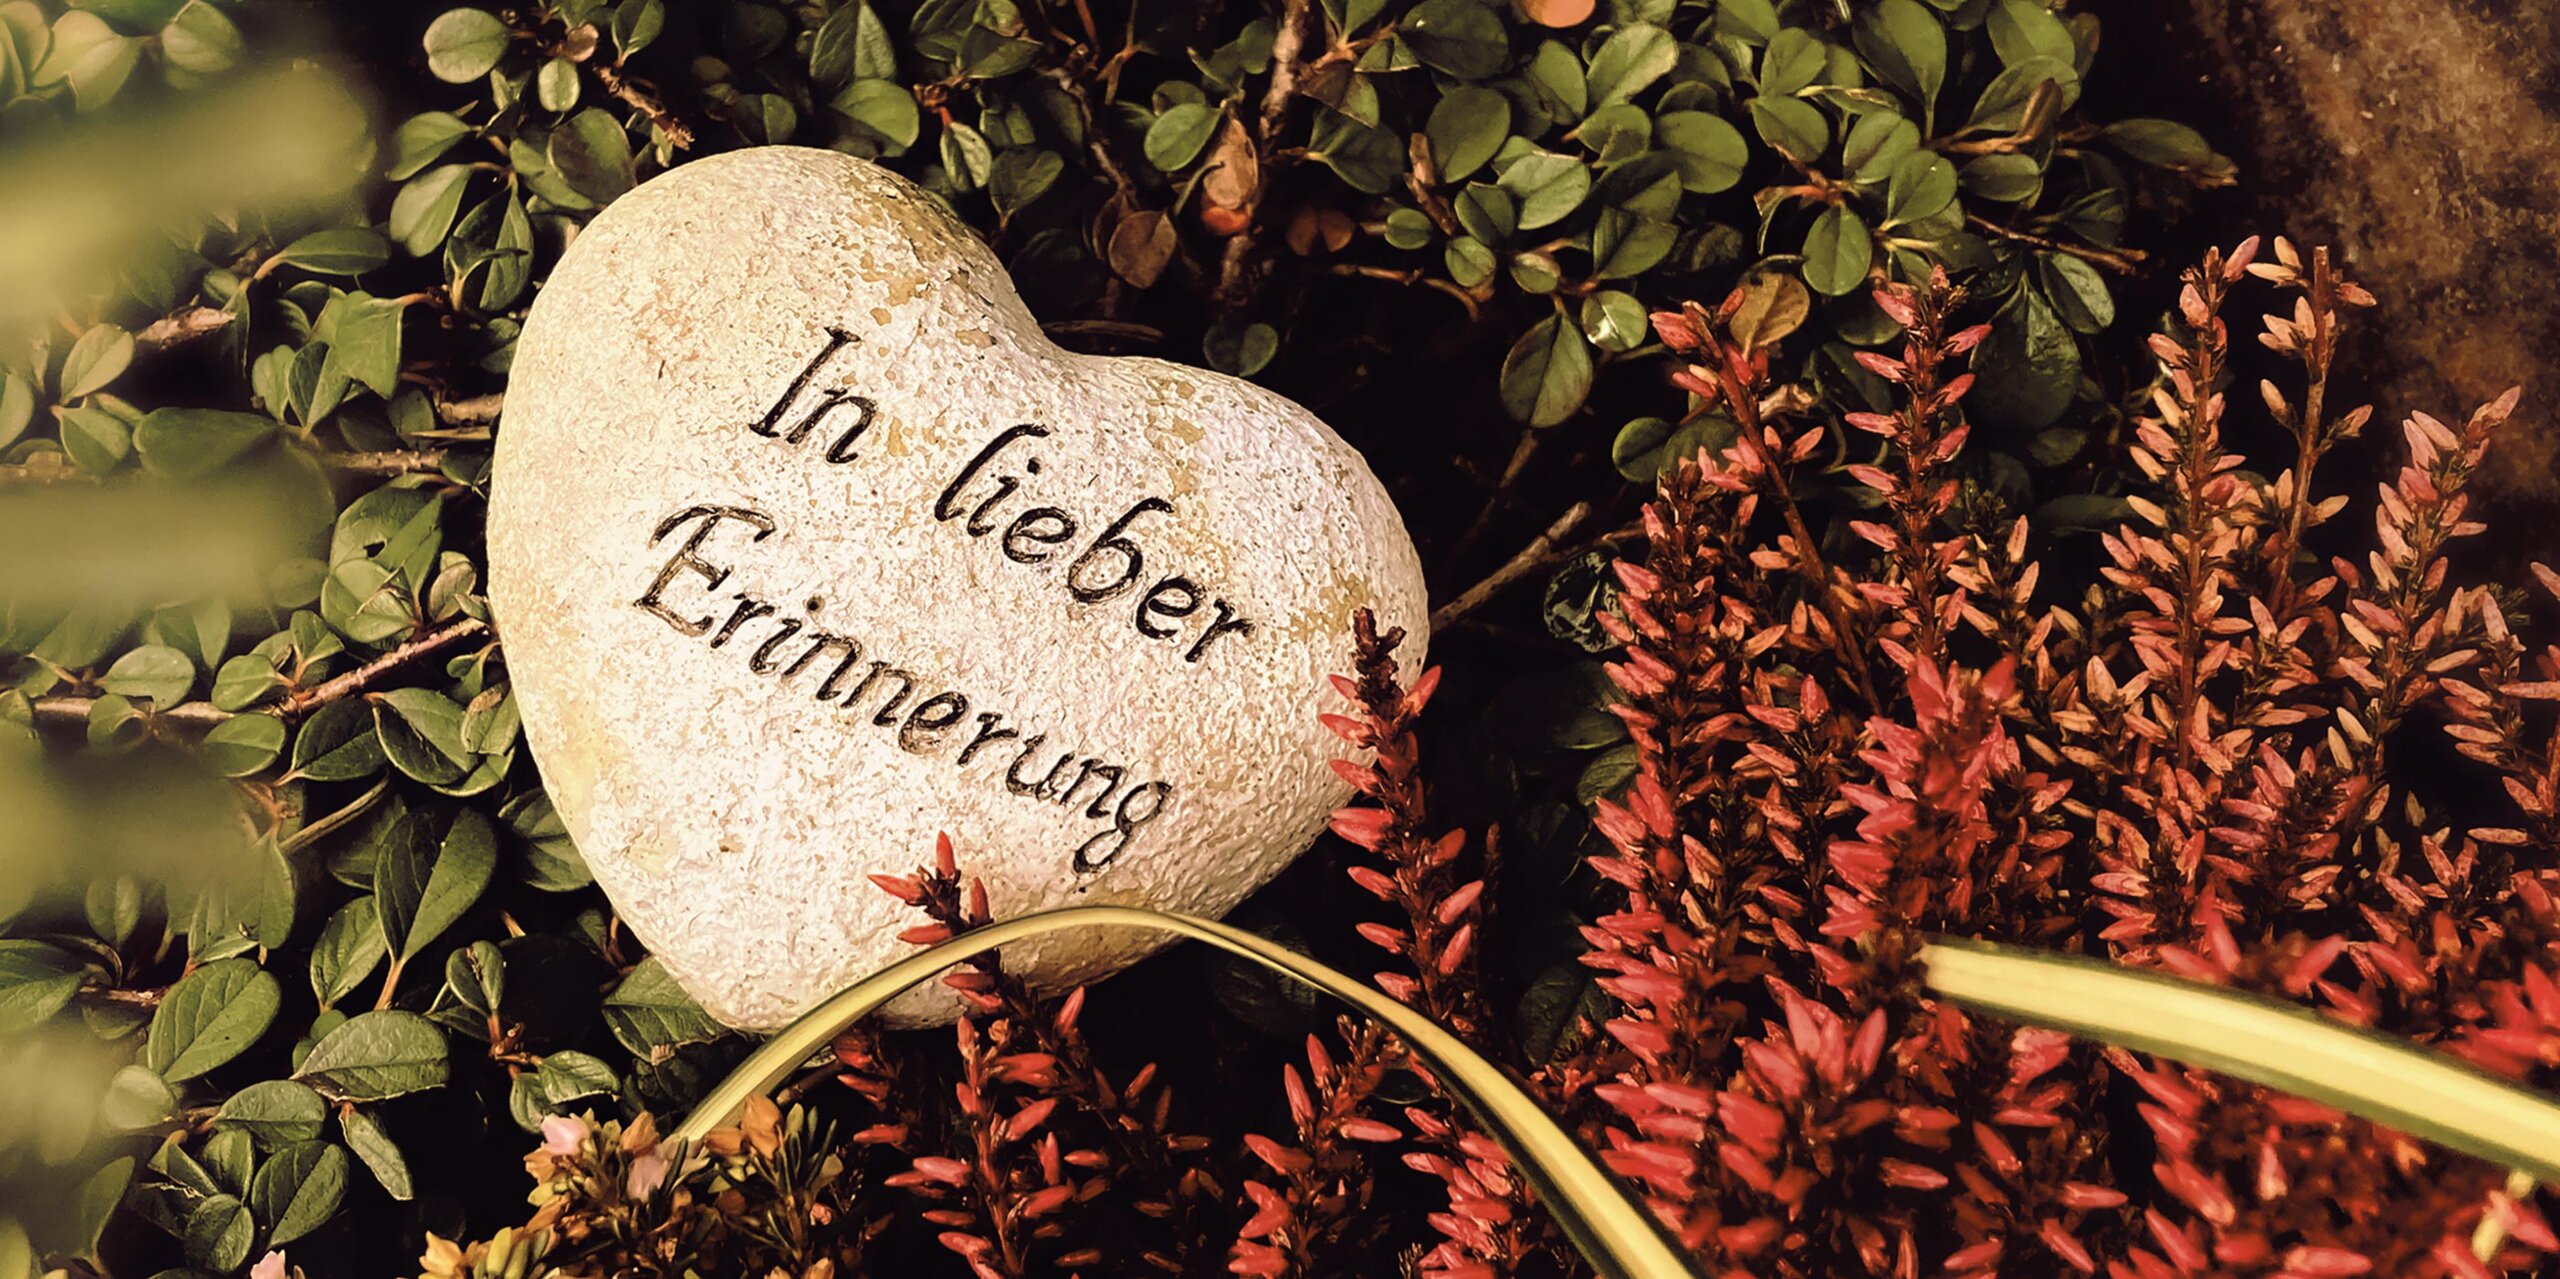 In lieber
Erinnerung